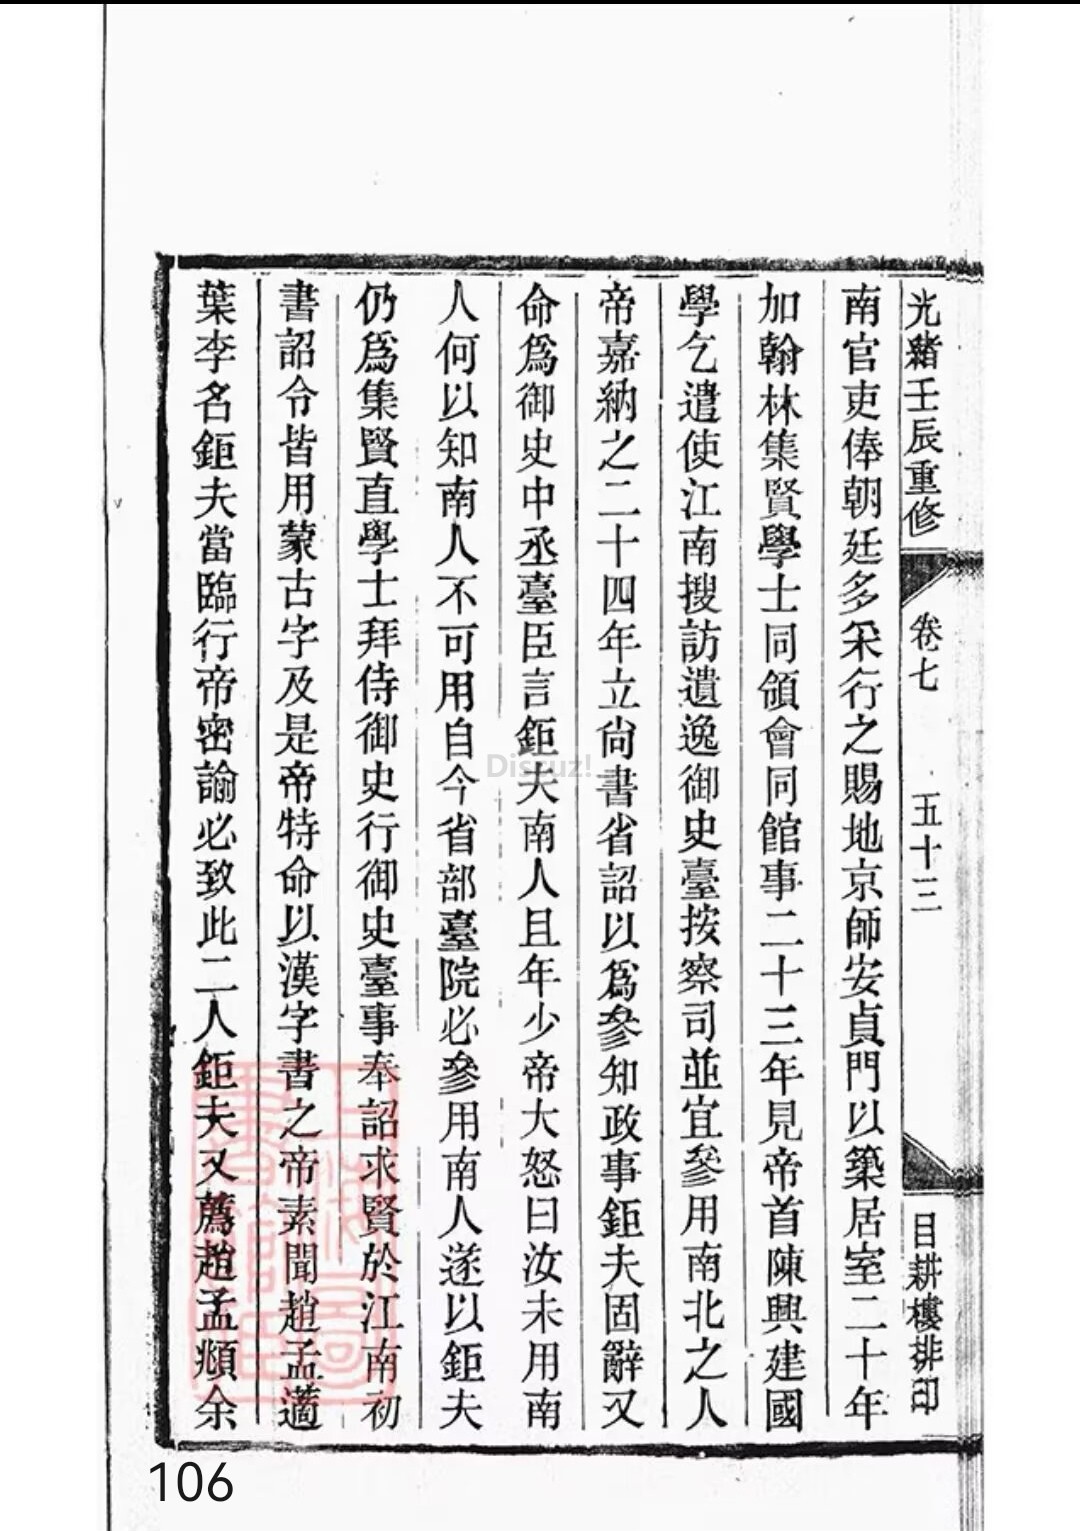 光緒壬辰重修 卷七 五十三 目耕樓排印
南官吏俸朝廷多采行之賜地京師安貞門以築居室二十年
加翰林集賢學士同領會同館事二十三年見帝首陳興建國
學乞遣使江南搜訪遺逸御史臺按察司並宜參用南北之人
帝嘉納之二十四年立尙書省詔以爲參知政事鉅夫固辭又
命爲御史中丞臺臣言鉅夫南人且年少帝大怒曰汝未用南
人何以知南人不可用自今省部臺院必參用南人遂以鉅夫
仍爲集賢直學士拜侍御史行御史臺事奉詔求賢於江南初
書詔令皆用蒙古字及是帝特命以漢字書之帝素聞趙孟藡
葉李名鉅夫當臨行帝密諭必致此二人鉅夫又薦趙孟頫余
Discuz!
上海圖書館藏
106